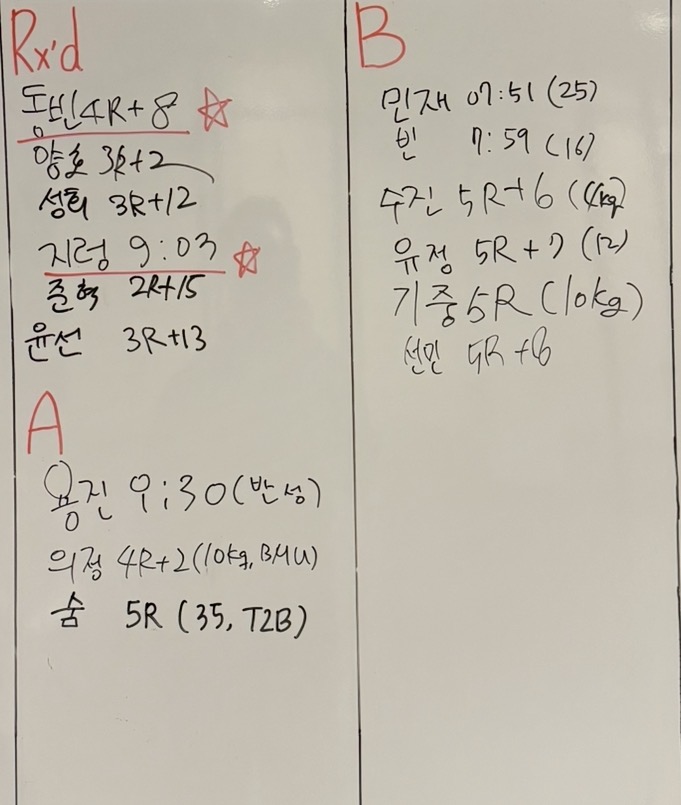 Rx'd
동빈 4R+8
양호 3R+2
성희 3R+12
지령 9:03
준혁 2R+15
윤선 3R+13
A
용진 9:30 (반성)
의정 4R+2 (10kg, BMU)
숨 5R (35, T2B)
B
민재 07:51 (25)
빈 7:59 (16)
수진 5R+6 (4kg)
유정 5R+7 (12)
기중 5R (10kg)
선민 5R+6